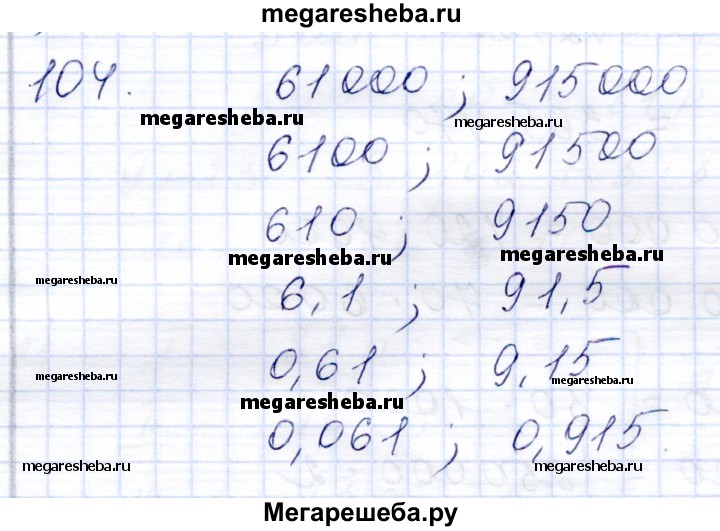 megaresheba.ru
104. 61000 ; 915000
megaresheba.ru megaresheba.ru
6100 ; 91500
610 ; 9150
megaresheba.ru megaresheba.ru
megaresheba.ru
6,1 ; 91,5
0,61 ; 9,15
megaresheba.ru megaresheba.ru
megaresheba.ru
0,061 ; 0,915
megaresheba.ru megaresheba.ru
Мегарешеба.ру